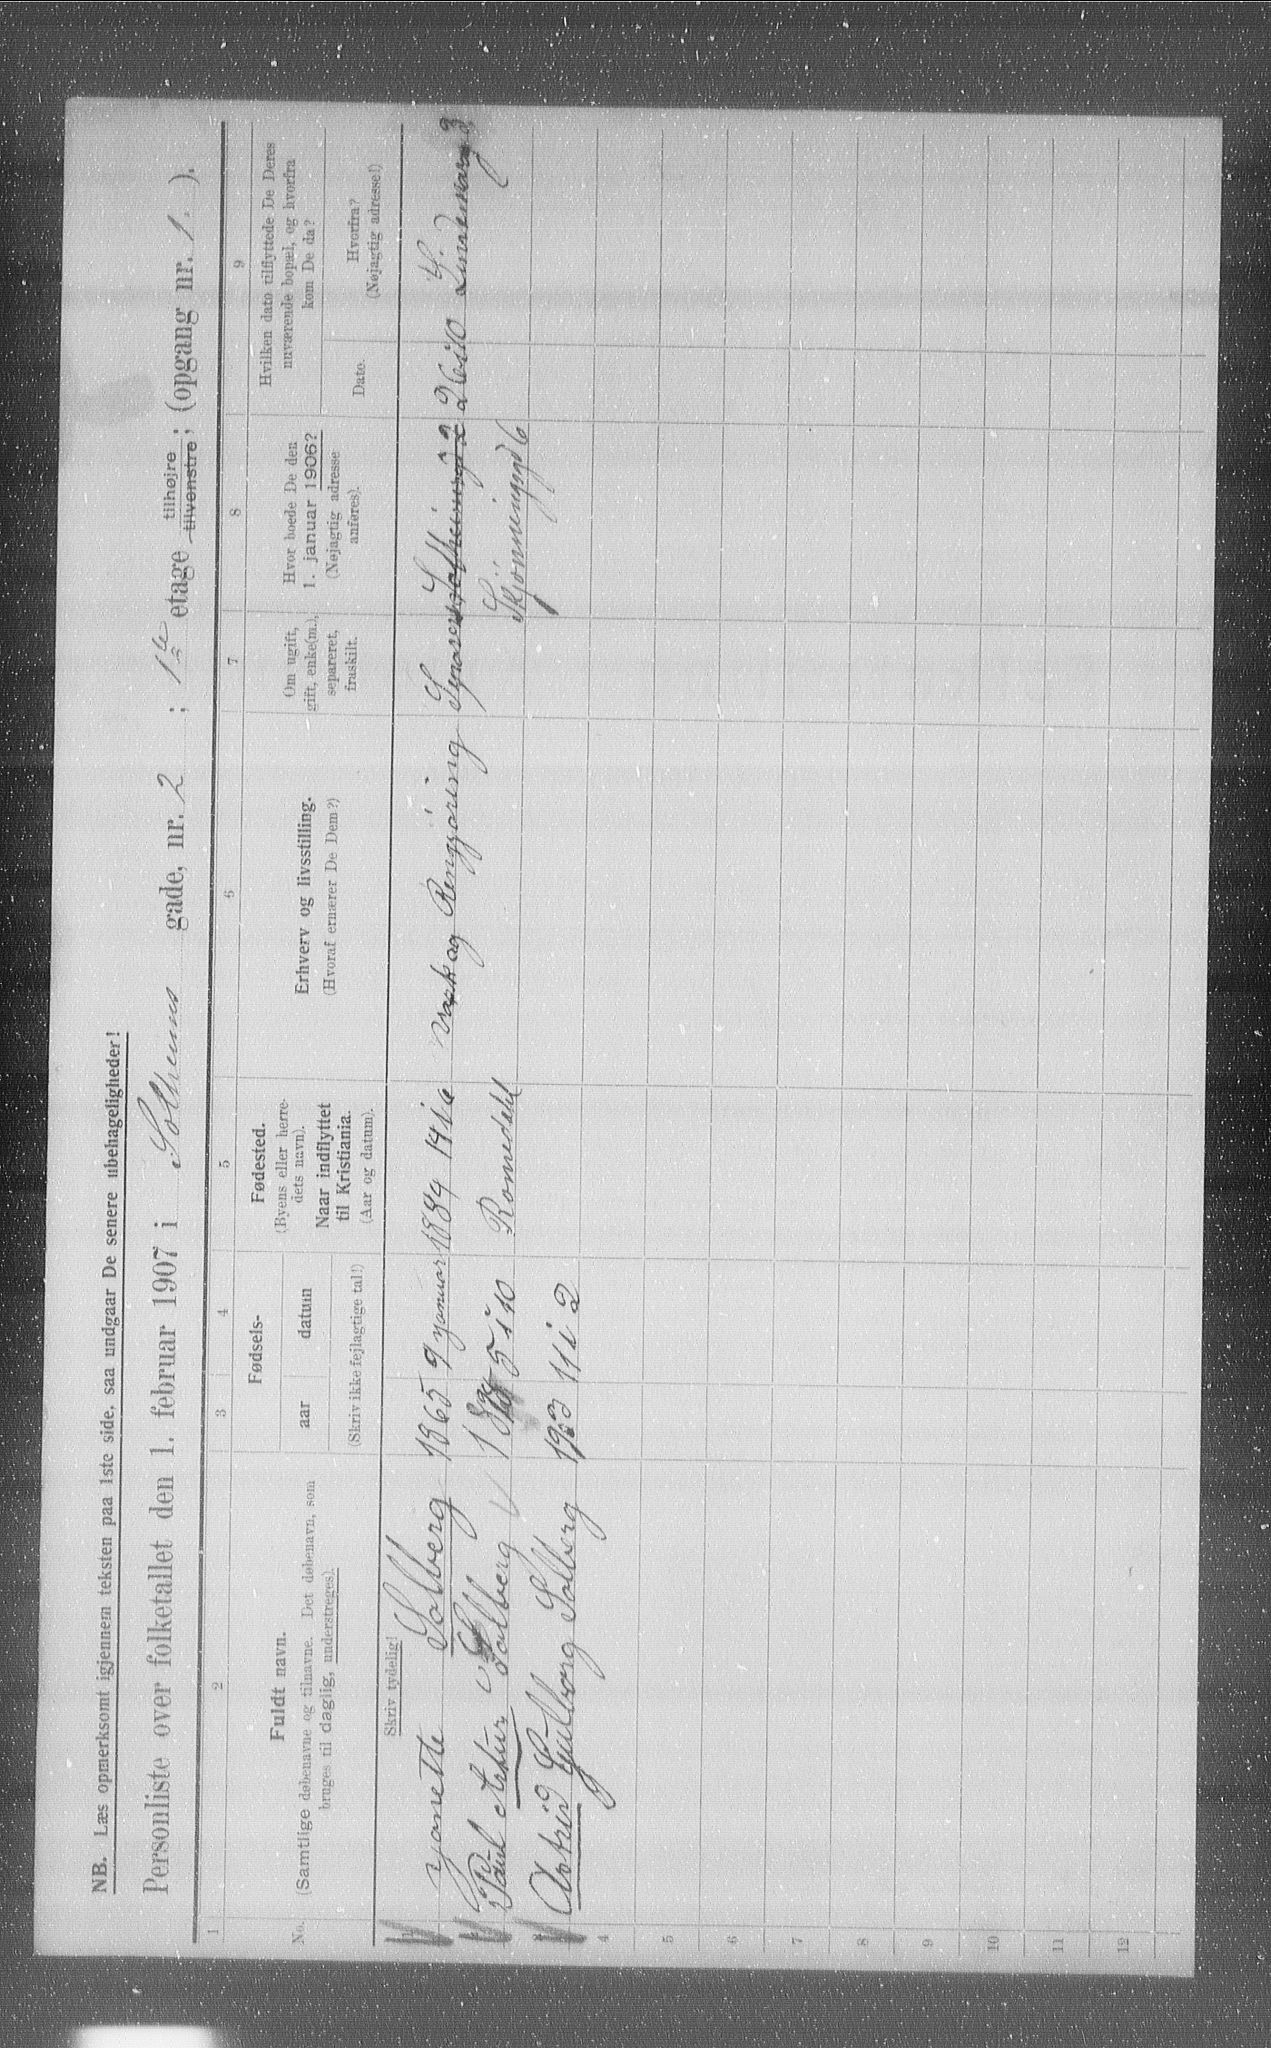 NB. Læs opmerksomt igjennem teksten paa 1ste side, saa undgaar De senere ubehageligheder!
Personliste over folketallet den 1. februar 1907 i Solheims gade, nr. 2 ; 1ste etage tilhøjre tilvenstre ; (opgang nr. 1. ).
1 2 3 4 5 6 7 8 9
No.
Fuldt navn.
(Samtlige døbenavne og tilnavne. Det døbenavn, som
bruges til daglig, understreges).
Skriv tydelig!
Fødsels-
aar datum
(Skriv ikke fejlagtige tal!)
Fødested.
(Byens eller herre-
dets navn).
Naar indflyttet
til Kristiania.
(Aar og datum).
Erhverv og livsstilling.
(Hvoraf ernærer De Dem?)
Om ugift,
gift, enke(m.),
separeret,
fraskilt.
Hvor boede De den
1. januar 1906?
(Nøjagtig adresse
anføres).
Hvilken dato tilflyttede De Deres
nuværende bopæl, og hvorfra
kom De da?
Dato.
Hvorfra?
(Nøjagtig adresse!)
1 Solberg 1865 9 januar 1884 14i og Rengjøring 26i10
2 Paul Artur Solberg 5i10 Romedahl
3 Astrid Solberg 11i2
4
5
6
7
8
9
10
11
12